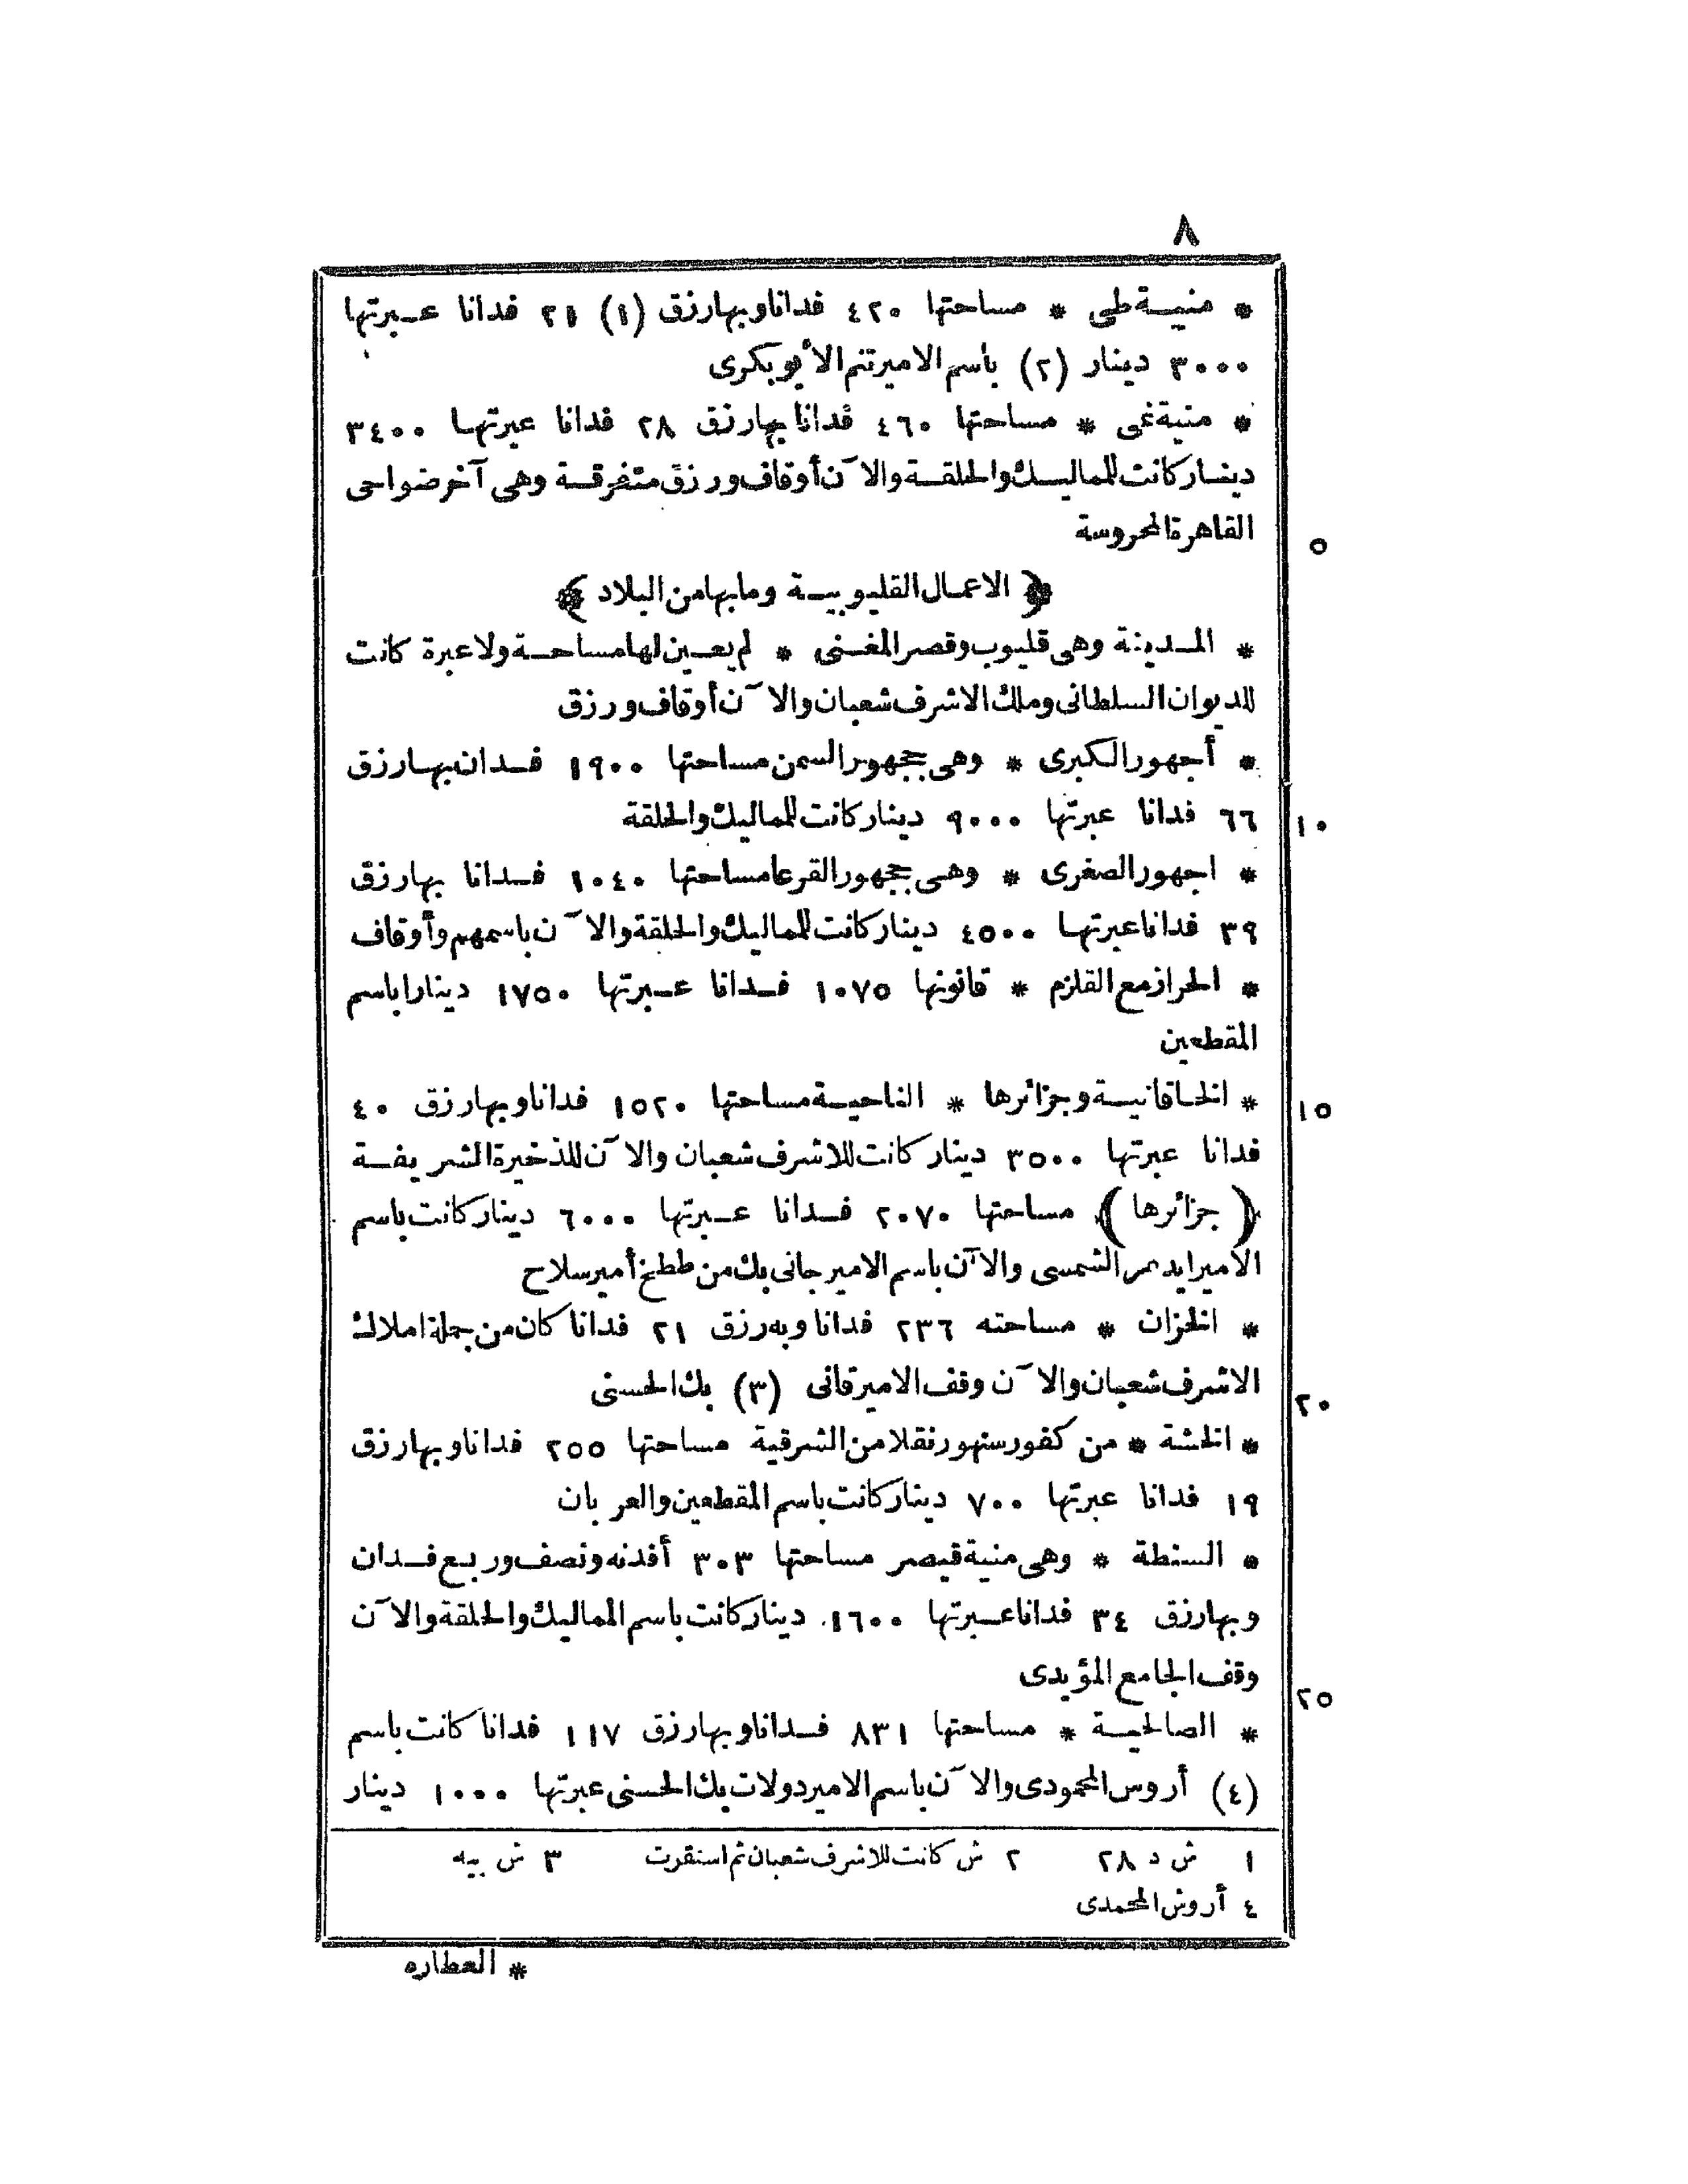 ٨
* منية طى * مساحتها ٤٢٠ فدانا وبها رزق (١) ٢١ فدانا عبرتها
٣٠٠٠ دينار (٢) بأسم الامير تنم الأبو بكرى
* منية نمى * مساحتها ٤٦٠ فدانا بها رزق ٢٨ فدانا عبرتها ٣٤٠٠
دينار كانت للمماليك والحلقة والآن أوقاف ورزق متفرقة وهى آخر ضواحى
القاهرة المحروسة
٥
﴿ الاعمال القليوبية وما بها من البلاد ﴾
* المدينة وهى قليوب وقصر المغنى * لم يعين لها مساحة ولا عبرة كانت
للديوان السلطانى وملك الاشرف شعبان والآن أوقاف ورزق
* أجهور الكبرى * وهى بجهور السمن مساحتها ١٩٠٠ فدان بها رزق
٦٦ فدانا عبرتها ٩٠٠٠ دينار كانت للمماليك والحلقة
١٠
* اجهور الصغرى * وهى بجهور القرعا مساحتها ١٠٤٠ فدانا بها رزق
٣٩ فدانا عبرتها ٤٥٠٠ دينار كانت للمماليك والحلقة والآن باسمهم وأوقاف
* الحراز مع القلزم * قانونها ١٠٧٥ فدانا عبرتها ١٧٥٠ دينارا باسم
المقطعين
* الخاقانية وجزائرها * الناحية مساحتها ١٥٢٠ فدانا وبها رزق ٤٠
١٥
فدانا عبرتها ٣٥٠٠ دينار كانت للاشرف شعبان والآن للذخيرة الشريفة
﴿ جزائرها ﴾ مساحتها ٢٠٧٠ فدانا عبرتها ٦٠٠٠ دينار كانت باسم
الامير ايدمر الشمسى والآن باسم الامير جانى بك من ططخ أمير سلاح
* الخزان * مساحته ٢٣٦ فدانا وبه رزق ٢١ فدانا كان من جملة املاك
الاشرف شعبان والآن وقف الامير قانى (٣) بك الحسنى
٢٠
* الخشة * من كفور سنهور نقلا من الشرقية مساحتها ٢٥٥ فدانا وبها رزق
١٩ فدانا عبرتها ٧٠٠ دينار كانت باسم المقطعين والعربان
* السنطة * وهى منية قيصر مساحتها ٣٠٣ أفدنه ونصف وربع فدان
وبها رزق ٣٤ فدانا عبرتها ١٦٠٠ دينار كانت باسم المماليك والحلقة والآن
وقف الجامع المؤيدى
٢٥
* الصالحية * مساحتها ٨٣١ فدانا وبها رزق ١١٧ فدانا كانت باسم
(٤) أروس المحمودى والآن باسم الامير دولات بك الحسنى عبرتها ١٠٠٠ دينار
١ ش د ٢٨ ٢ ش كانت للاشرف شعبان ثم استقرت ٣ ش بيه
٤ أروش المحمدى
* العطاره